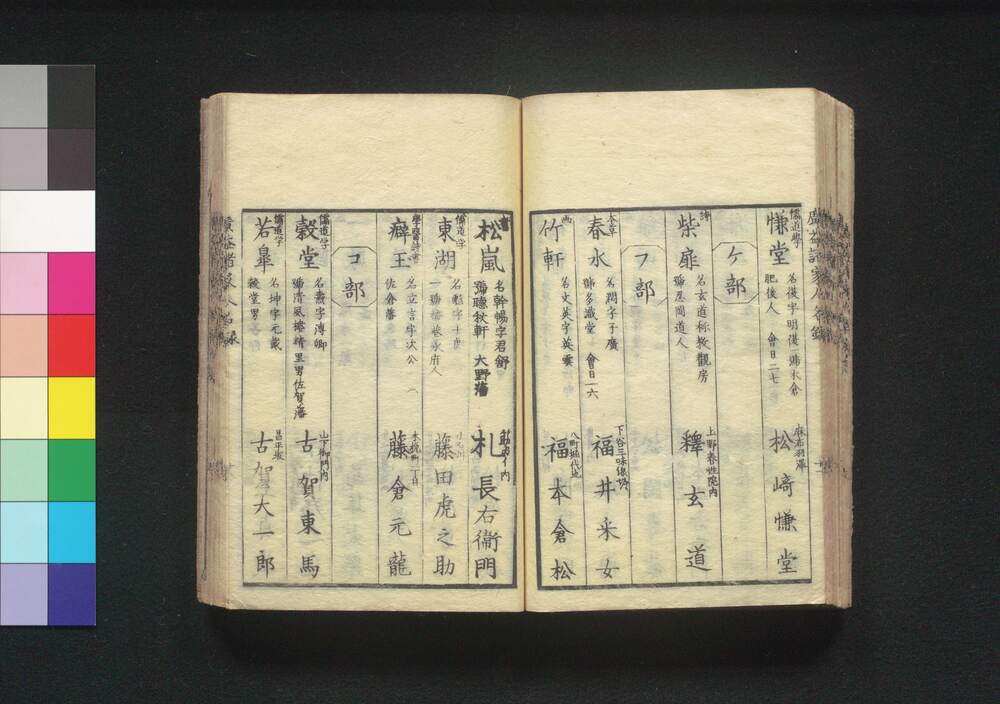 慊堂
儒道學
名復字明復 號木倉
肥後人 會日二七
麻布羽澤
松﨑慊堂
ケ部
柴扉
詩
名玄道称教觀房
號愚岡道人
上野春性院内
釋玄道
フ部
春水
本草
名潤字子廣
號多識堂 會日一六
下谷三味線堀
福井采女
竹軒
画
名文英字英雲
八町堀代地
福本倉松
松嵐
書
名幹暢字君舒
號聽秋軒 大野藩
札長右衞門
東湖
儒道学
名彪字
一號梅巷水府人
藤田虎之助
癖王
名立言字次公
佐倉藩
木挽町一丁目
藤倉元龍
コ部
穀堂
儒道学
名燾字溥卿
號清風樓精里男佐賀藩
山下御門内
古賀東馬
若皐
儒道学
名坤字元載
穀堂男
昌平坂
古賀大一郎